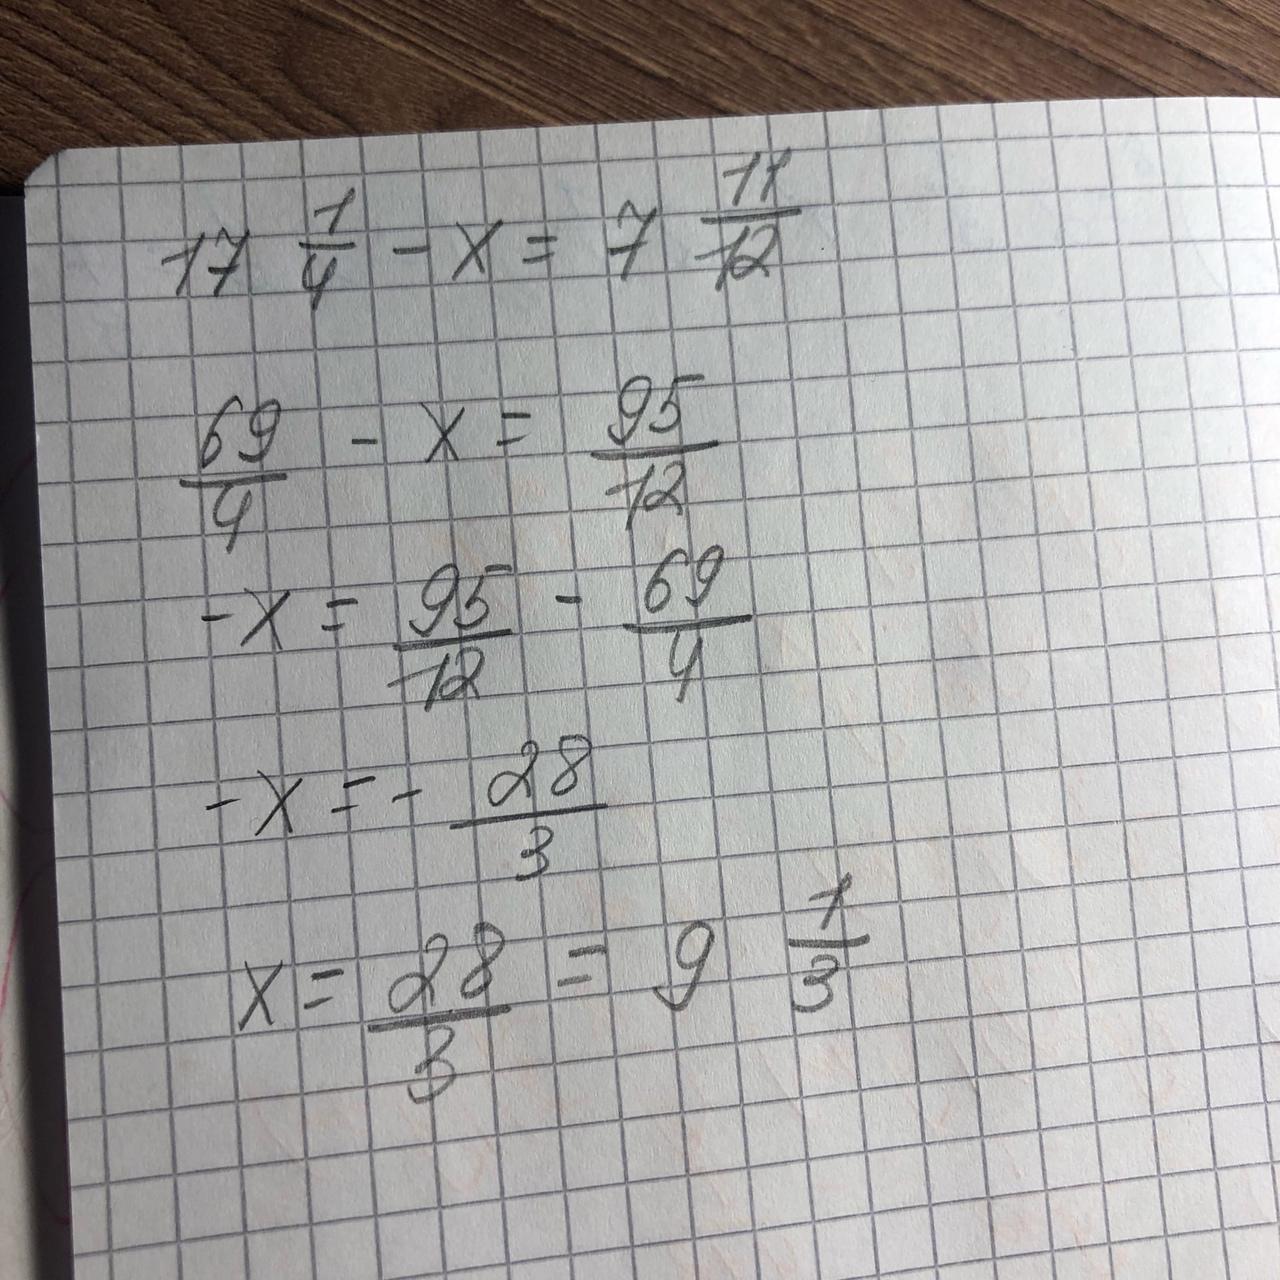 17 1/4 - x = 7 11/12
69/4 - x = 95/12
-x = 95/12 - 69/4
-x = - 28/3
x = 28/3 = 9 1/3